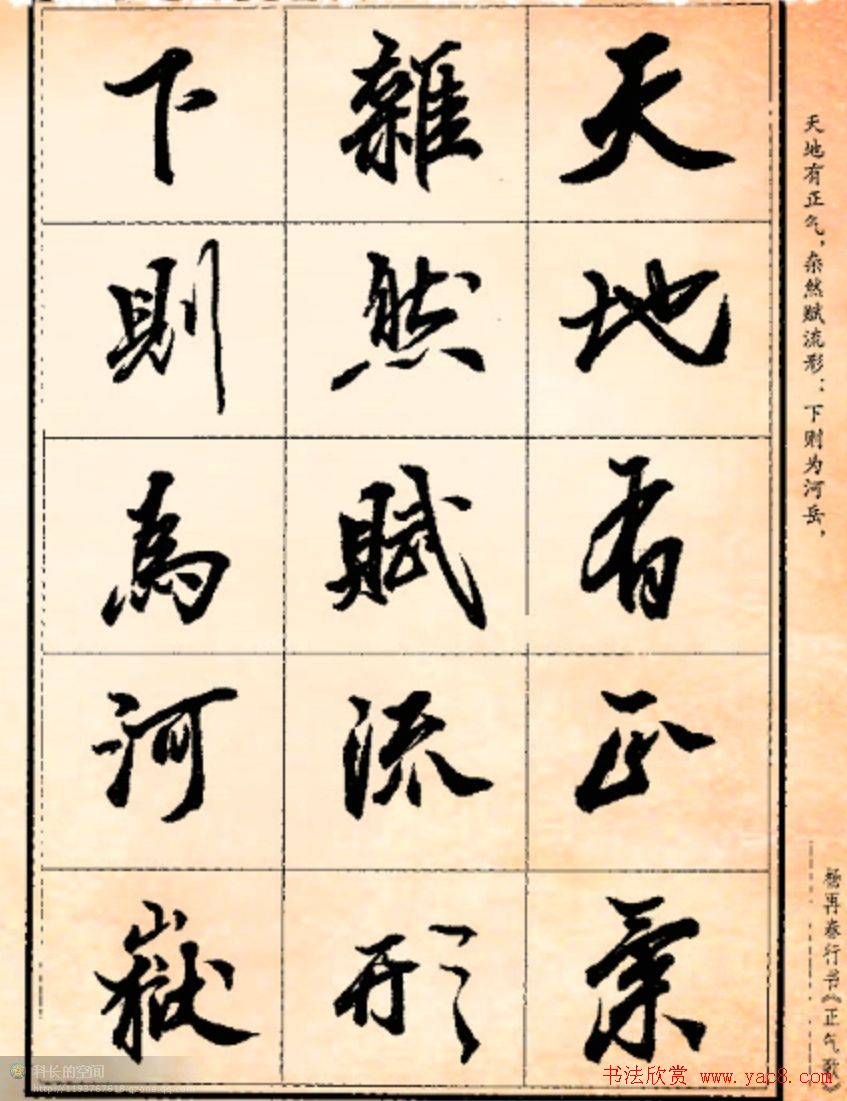 天地有正氣
雜然賦流形
下則為河嶽
天地有正气，杂然赋流形：下则为河岳，
杨再春行书《正气歌》
科长的空间
http://1193767618.qzone.qq.com
书法欣赏 www.yac8.com